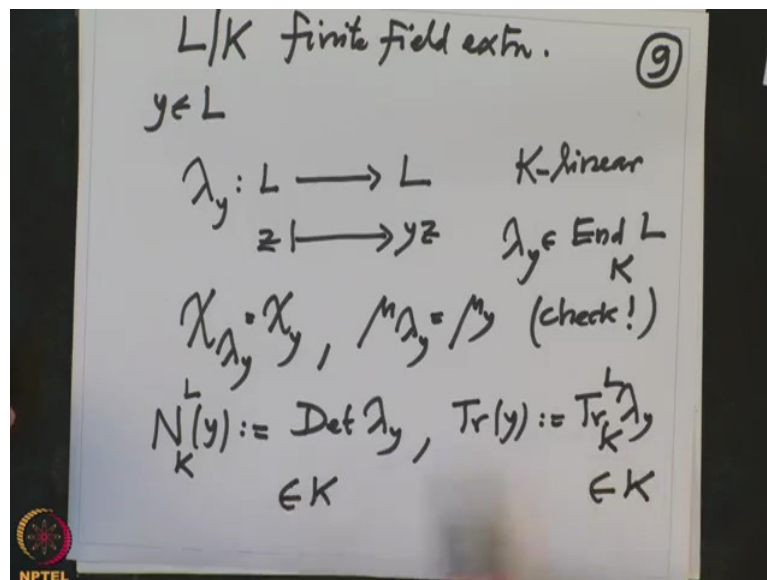 L/K finite field extn. ⑨
y ∈ L
λ_y : L ⟶ L K-linear
z ⟼ yz λ_y ∈ End_K L
χ_{λ_y} = χ_y , μ_{λ_y} = μ_y (check!)
N^L_K(y) := Det λ_y , Tr(y) := Tr^L_K λ_y
∈ K ∈ K
NPTEL